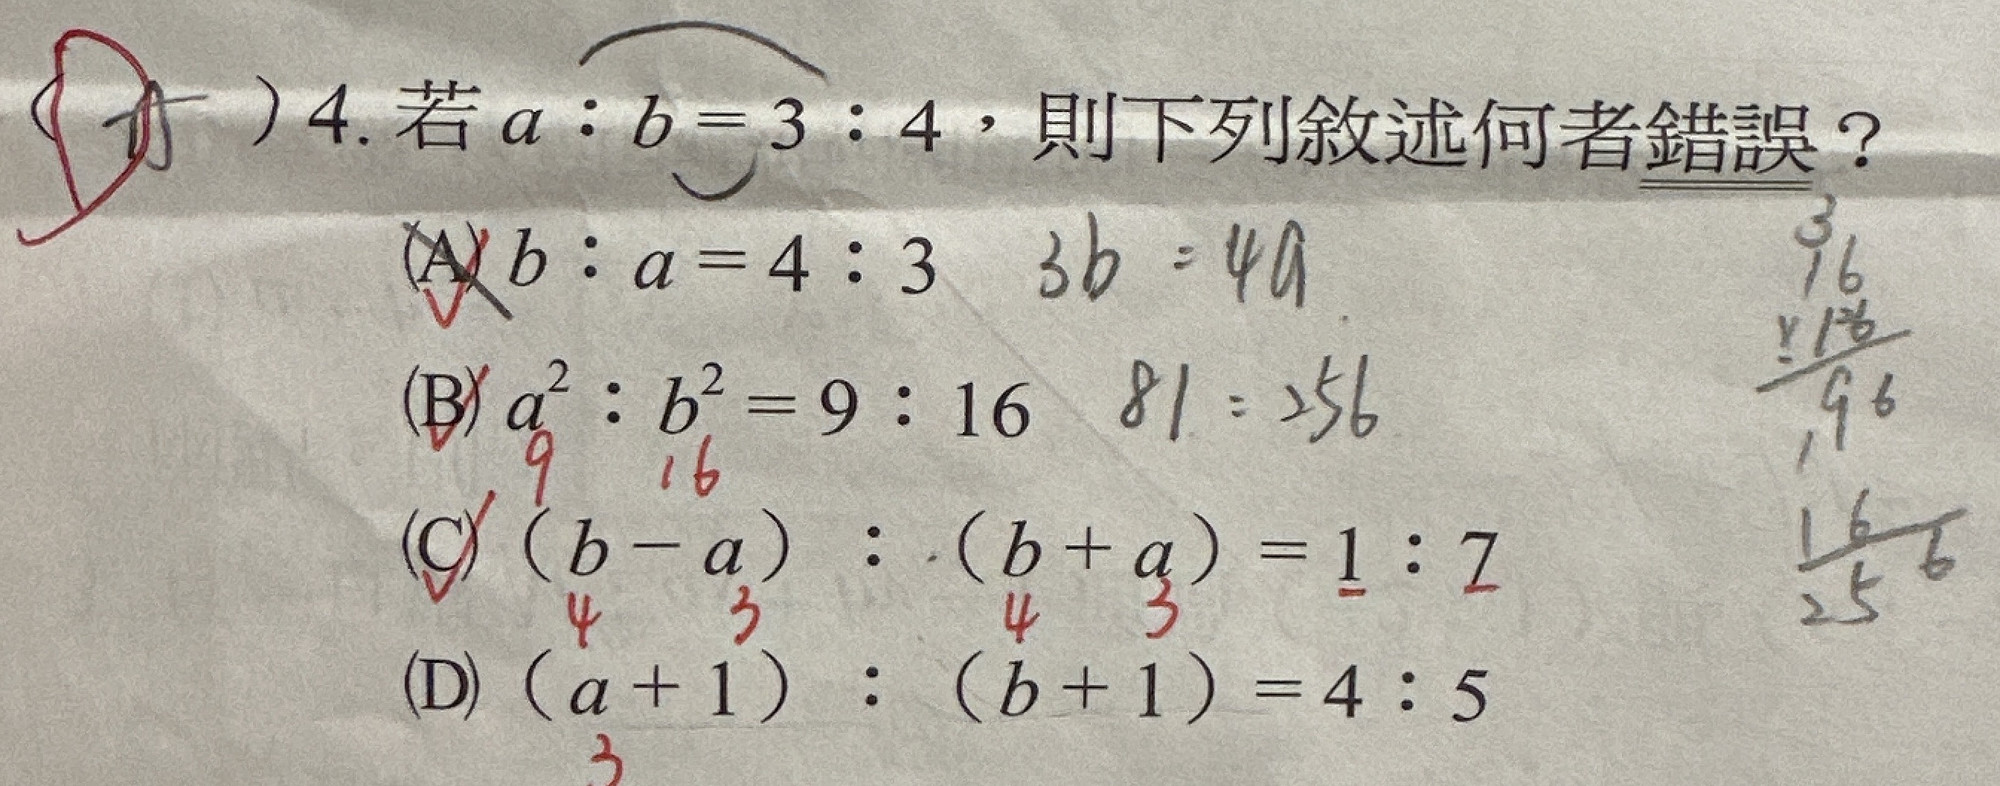 ( )4. 若 a：b＝3：4，則下列敘述何者錯誤？
(A) b：a＝4：3 3b = 4a
(B) a²：b²＝9：16 81 : 256
9 16
(C)（b－a）：（b＋a）＝1：7
4 3 4 3
(D)（a＋1）：（b＋1）＝4：5
3
3
16
×16
96
16
256